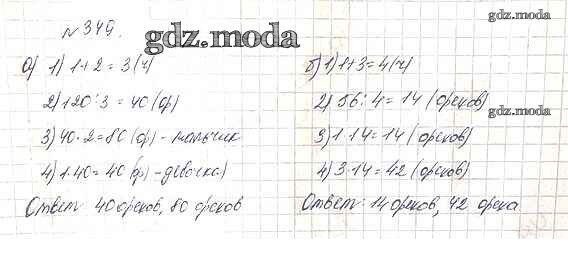 № 349.
gdz.moda
gdz.moda
а) 1) 1+2=3(ч)
2) 120:3=40(ор)
3) 40·2=80(ор)-мальчик
4) 1·40=40(ор)-девочка)
Ответ: 40 орехов, 80 орехов
б) 1) 1+3=4(ч)
2) 56:4=14 (орехов)
gdz.moda
3) 1·14=14 (орехов)
4) 3·14=42 (орехов)
Ответ: 14 орехов, 42 ореха.